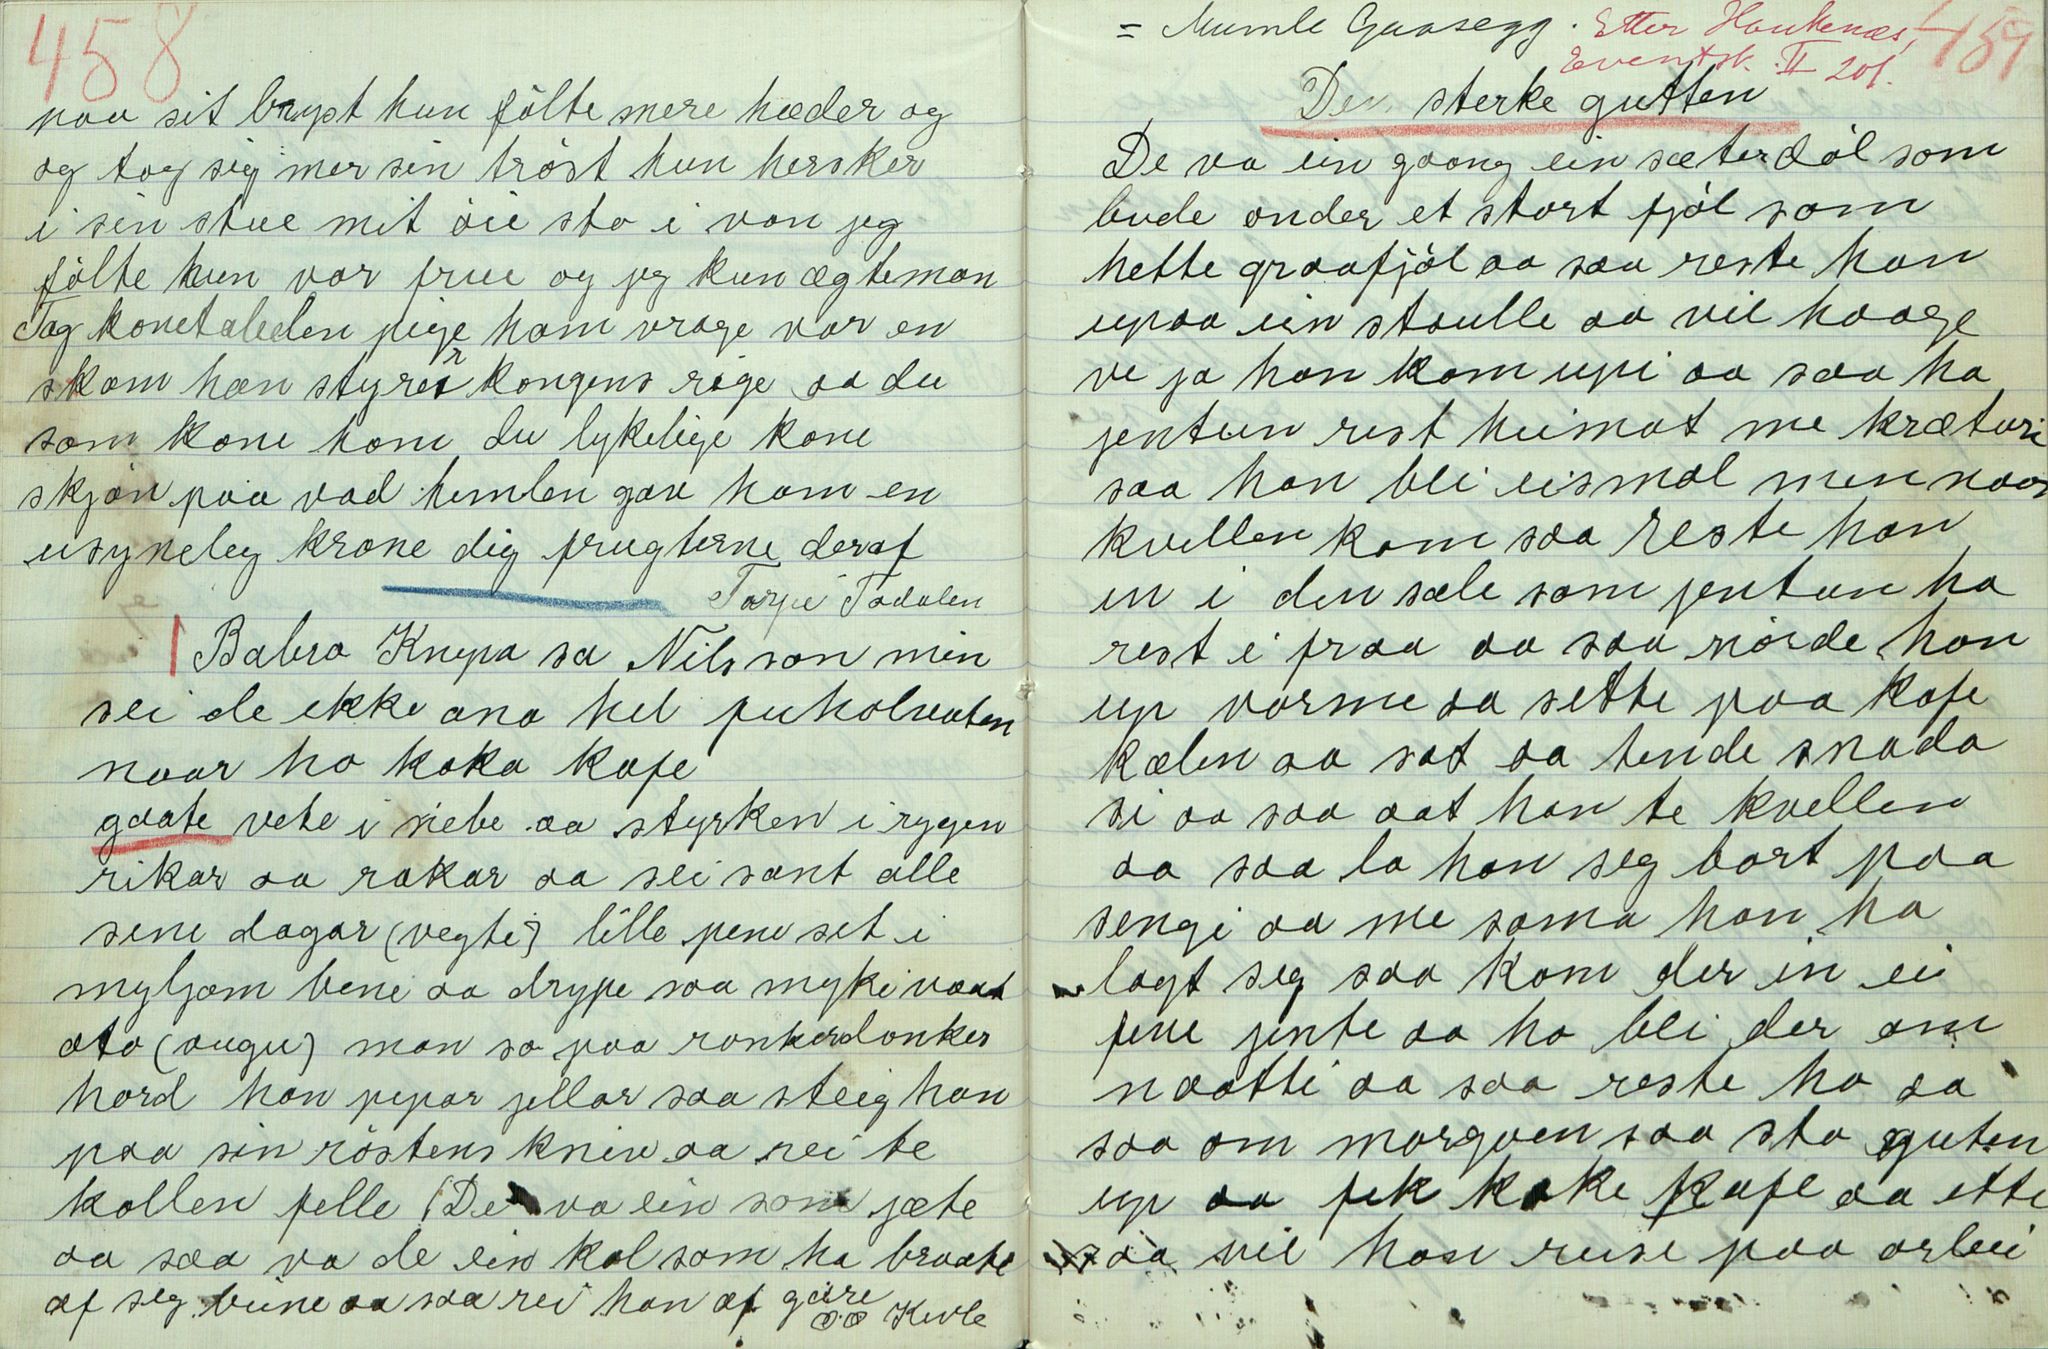 458
paa sit bryst hun følte mere hæder og
og tog sig mer sin trøst hun hersker
i sin stue mit øie sto i van jeg
følte hun var frue og jeg kun ægteman
Tag konetabelen pige ham vrage var en
skam han styrer kongens rige aa du
som kone kom du lykelige kone
skjøn paa vad himlen gav ham en
usyneleg krone dig frugterne deraf
Torpe Tadalen
Babra Knepa sa Nils son min
sei de ikke ana hel
naar ho koka kafe
gaate vete i nebe aa styrken i rygen
rikar aa rakar aa sei sant alle
sine dagar (vegti) lille pene set i
myljom bene aa drype saa myki vaat
ato (augu) man sa paa rankerdonker
hord han pipar jellar saa steig han
paa sin røstens kniv aa rei te
kollen felle (De va ein som jæte
aa saa va de ein kal som ha braate
af seg beine aa saa rei han af gaire
O.O Kivle
= Mumle Gaasegg. Etter Haukenæs,
Eventsk. II 201.
459
Den sterke gutten
De va ein gaang ein sæterdøl som
bude onder et stort fjøl som
hette graafjøl aa saa reste han
upaa ein staulle aa vil haage
ve ja han kom upi aa saa ha
jentun rest heimat me kræturi
saa han bli eismal men naar
kvellen kom saa reste han
in i den sæle som jentun ha
rest i fraa aa saa nørde han
up varme aa sette paa kafe
kælen aa sat aa tende snada
si aa saa aat han te kvellen
aa saa la han seg bort paa
sengi aa me sama han ha
lagt seg saa kom der in ei
fine jente aa ho bli der om
naatti aa saa reste ho aa
saa om morgaen saa sto guten
up aa fek koke kafe aa ette
saa vil han reise paa arbei